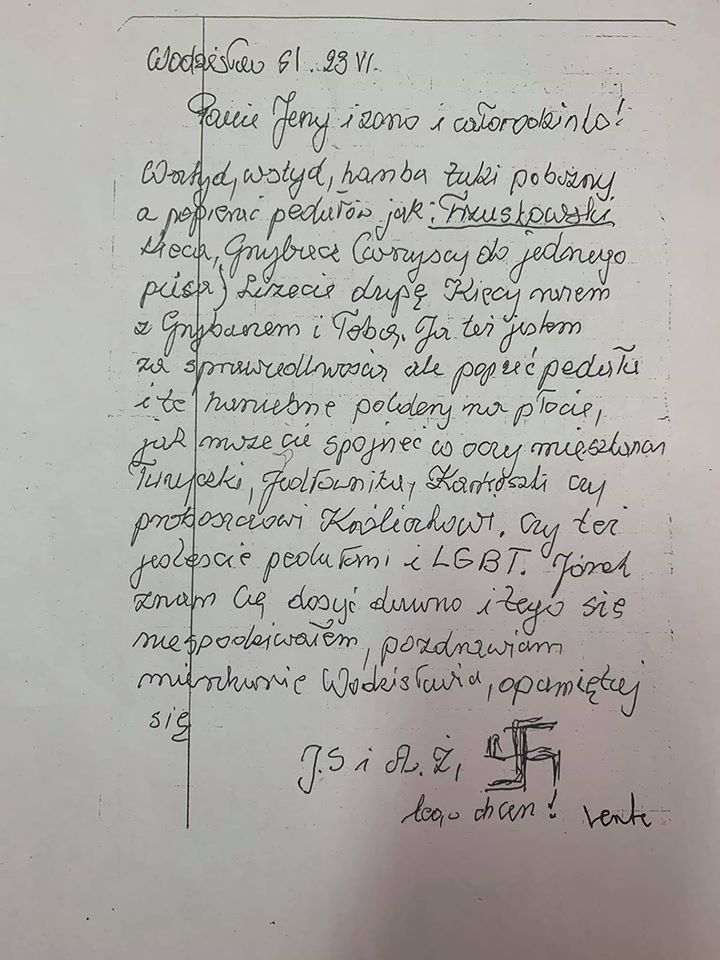 Wodzisław Śl. 23 VI.
Panie Jerzy i żono i cało rodzinko!
Wstyd, wstyd, hamba taki pobożny
a popierać pedałów jak: Trzuskowski
Kieca, Grzybiecz (wszyscy do jednego
pusa) Liżecie dupę Kiecy razem
z Grzybarzem i Tobą. Ja też jestem
za sprawiedliwością ale poprzeć pedała
i te haniebne poldery na płocie,
jak możecie spojrzeć w oczy mieszkańcan
Turyczki, Jedłownika, Karkoszki czy
proboszczowi Królickowi. czy też
jesteście pedałami i LGBT. Józek
znam Cię dosyć dawno i tego się
niespodziwałem, pozdrawiam
mieszkanie Wodzisławia, opamiętaj
się
J.S i A. Ż,
tego chcesz!